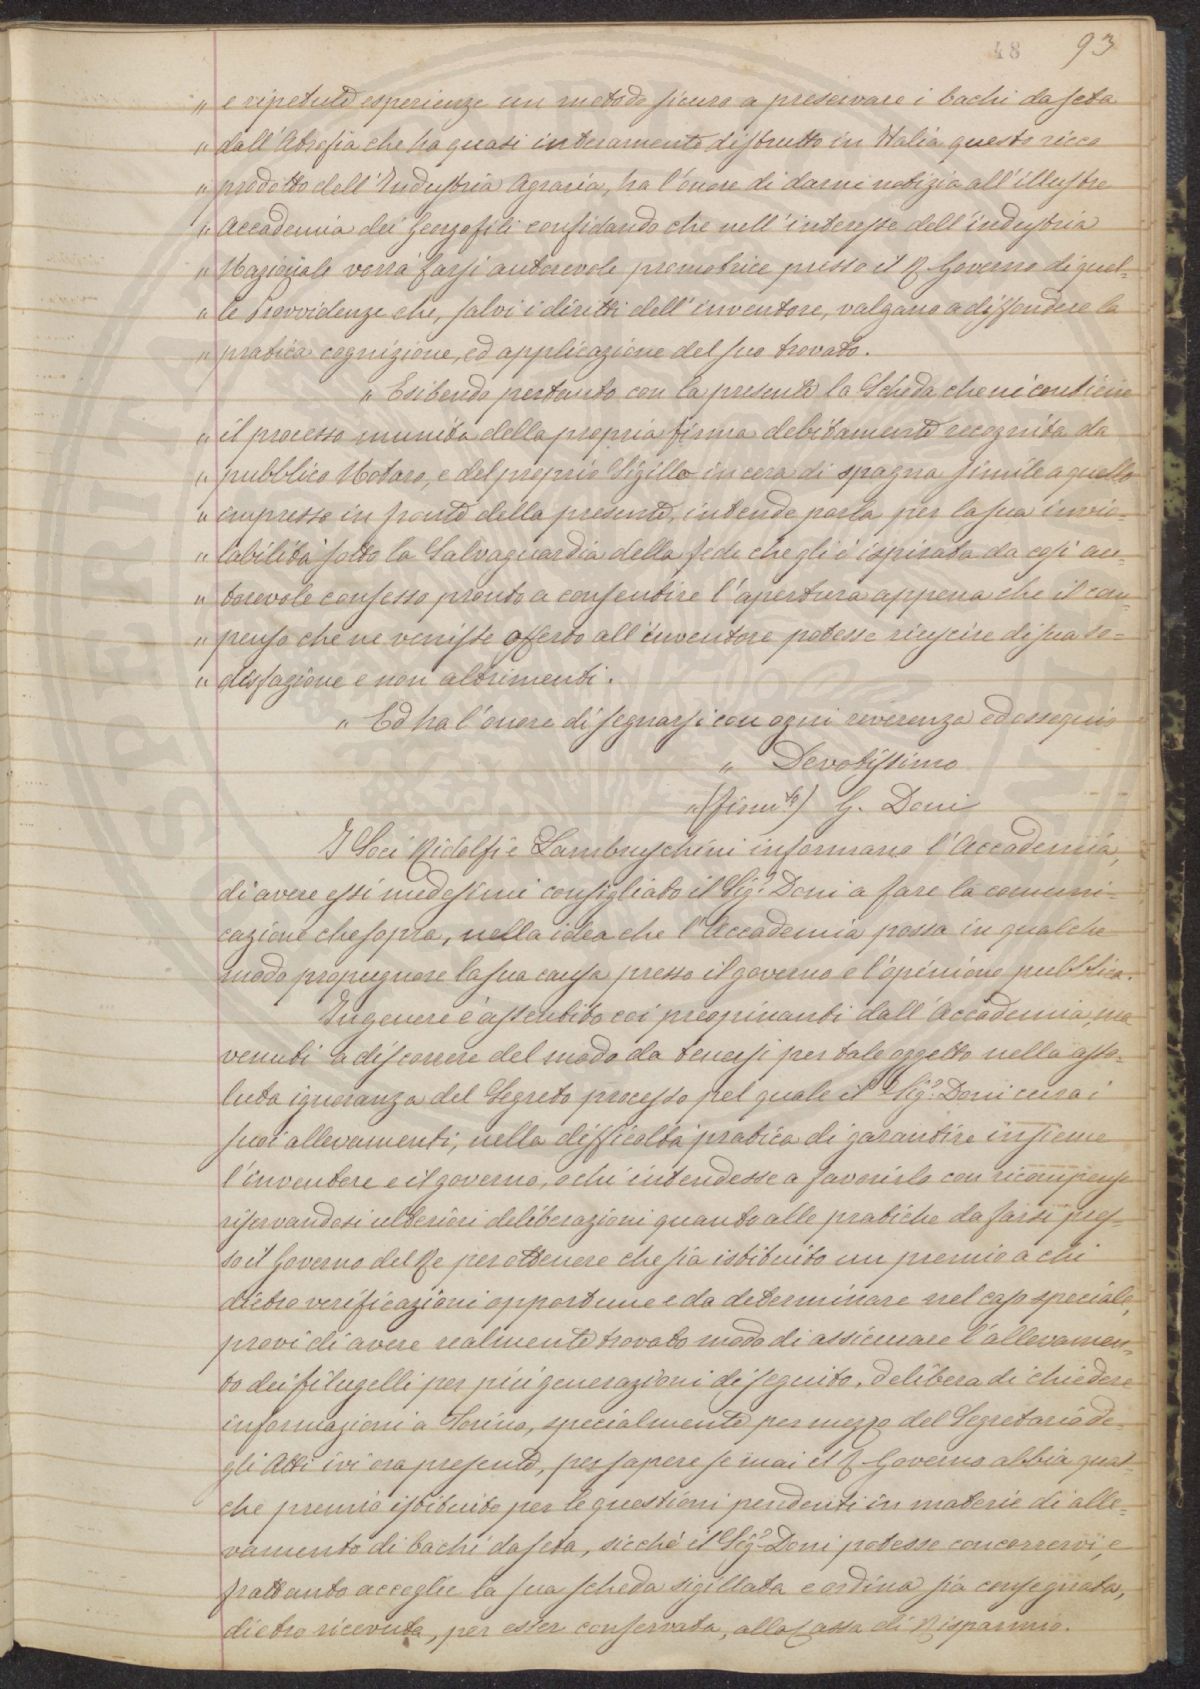 48 93
„ e ripetute esperienze un metodo sicuro a preservare i bachi da seta
„ dall'Atrofia che ha quasi interamente distrutto in Italia questo ricco
„ prodotto dell'Industria Agraria, ha l'onore di darne notizia all'illustre
„ Accademia dei Georgofili confidando che nell'interesse dell'industria
„ Nazionale vorrà farsi autorevole promotrice presso il R. Governo di quel-
„ le Provvidenze che, salvi i diritti dell'inventore, valgano a diffondere la
„ pratica cognizione, ed applicazione del suo trovato.
„ Esibendo pertanto con la presente la Scheda che ne contiene
„ il processo munita della propria firma debitamente recognita da
„ pubblico Notaro, e del proprio Sigillo in cera di spagna simile a quello
„ impresso in fronte della presente, intende porla per la sua invio-
„ labilità sotto la Salvaguardia della fede che gli è ispirata da così au-
„ torevole consesso pronto a consentire l'apertura appena che il com-
„ penso che ne venisse offerto all'inventore potesse riuscire di sua so-
„ disfazione e non altrimenti.
„ Ed ha l'onore di segnarsi con ogni reverenza ed ossequio
„ Devotissimo
„ (firmto) G. Doni
I Soci Ridolfi e Lambruschini informano l'Accademia,
di avere essi medesimi consigliato il Sigr. Doni a fare la comuni-
cazione che sopra, nella idea che l'Accademia possa in qualche
modo propugnare la sua causa presso il governo e l'opinione pubblica.
In genere è assentito coi preopinanti dall'Accademia, ma
venuti a discorrere del modo da tenersi per tale oggetto nella asso-
luta ignoranza del Segreto processo pel quale il Sigr. Doni cura i
suoi allevamenti, nella difficoltà pratica di garantire insieme
l'inventore e il governo, o chi intendesse a favorirlo con ricompense
riservandosi ulteriori deliberazioni quanto alle pratiche da farsi pres-
so il Governo del Re per ottenere che sia istituito un premio a chi
dietro verificazioni opportune e da determinare nel caso speciale,
provi di avere realmente trovato modo di assicurare l'allevamen-
to dei filugelli per più generazioni di seguito, delibera di chiedere
informazioni a Torino, specialmente per mezzo del Segretario de-
gli Atti ivi ora presente, per sapere se mai il R. Governo abbia qual-
che premio istituito per le questioni pendenti in materie di alle-
vamento di bachi da seta, sicché il Sigr. Doni potesse concorrervi, e
frattanto accoglie la sua scheda sigillata e ordina sia consegnata,
dietro ricevuta, per esser conservata, alla Cassa di Risparmio.